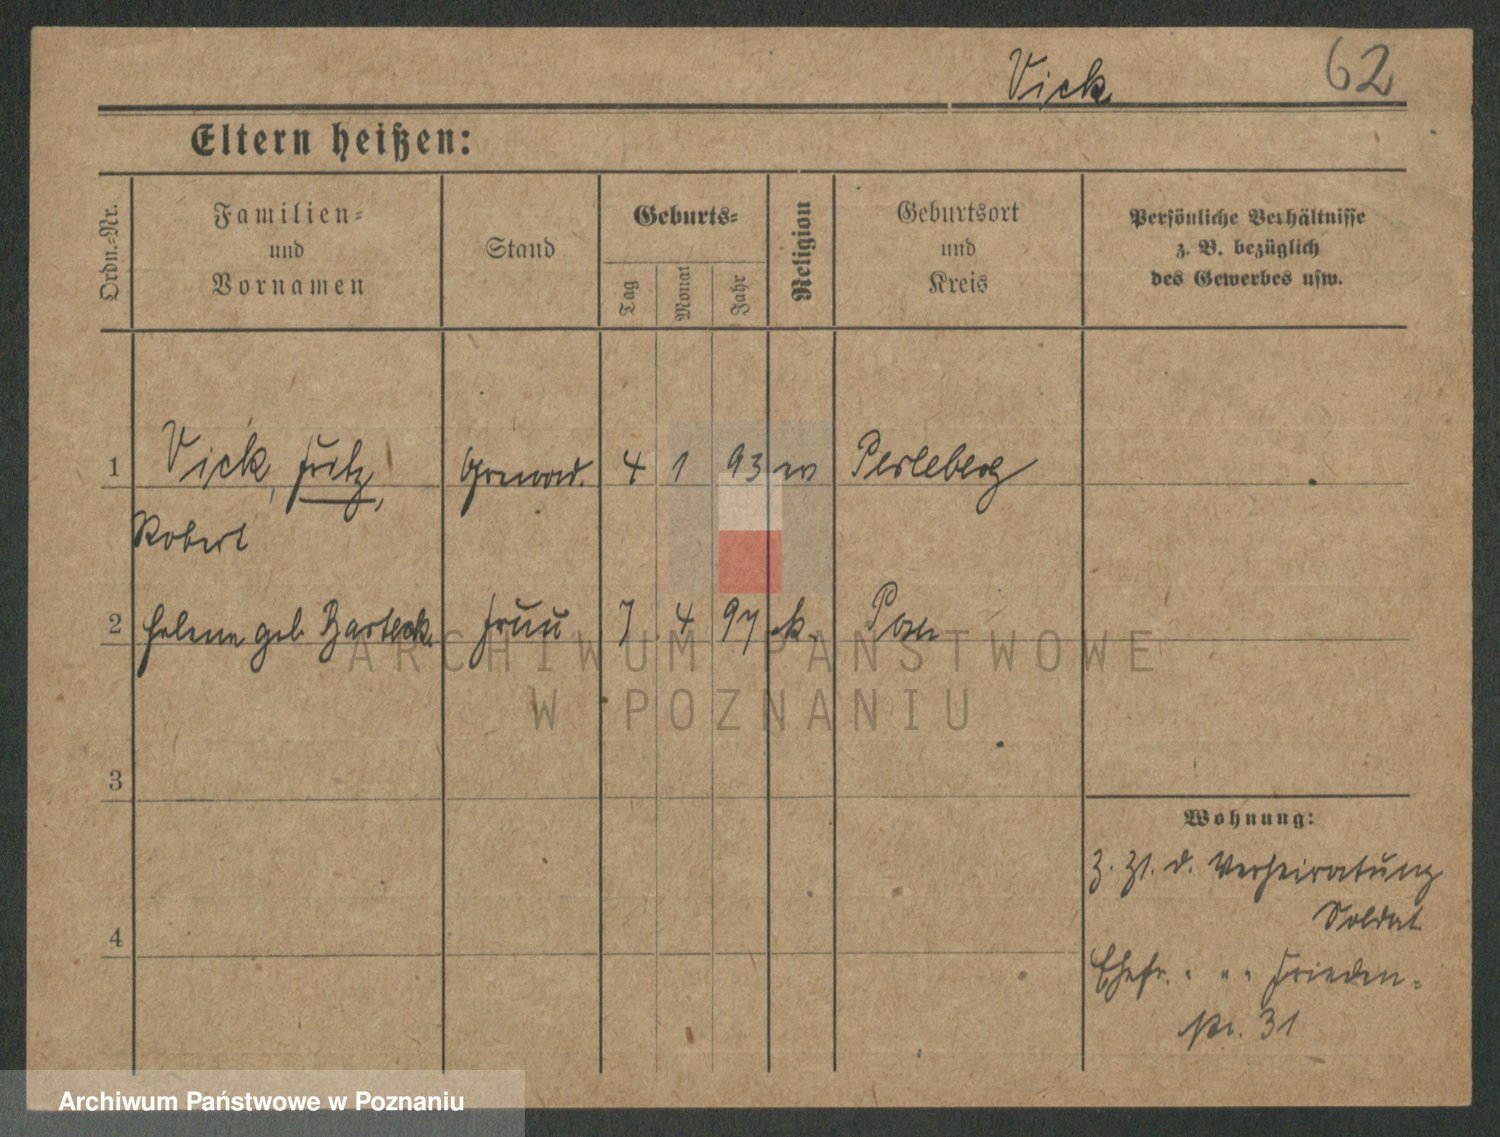 Vick 62
Eltern heißen:
Ordn.-Nr. Familien- und Vornamen Stand Geburts- Tag Monat Jahr Religion Geburtsort und Kreis Persönliche Verhältnisse z. B. bezüglich des Gewerbes usw.
1 Vick, Fritz, Grenad. 4 1 93 ev Perleberg
Robert
2 Helene geb. Barteck. Frau 7 4 97 k. Posen
3
4
Wohnung:
z. Zt. d. Verheiratung
Soldat
Ehefr. " " " Frieden-
str. 31
ARCHIWUM PAŃSTWOWE
W POZNANIU
Archiwum Państwowe w Poznaniu